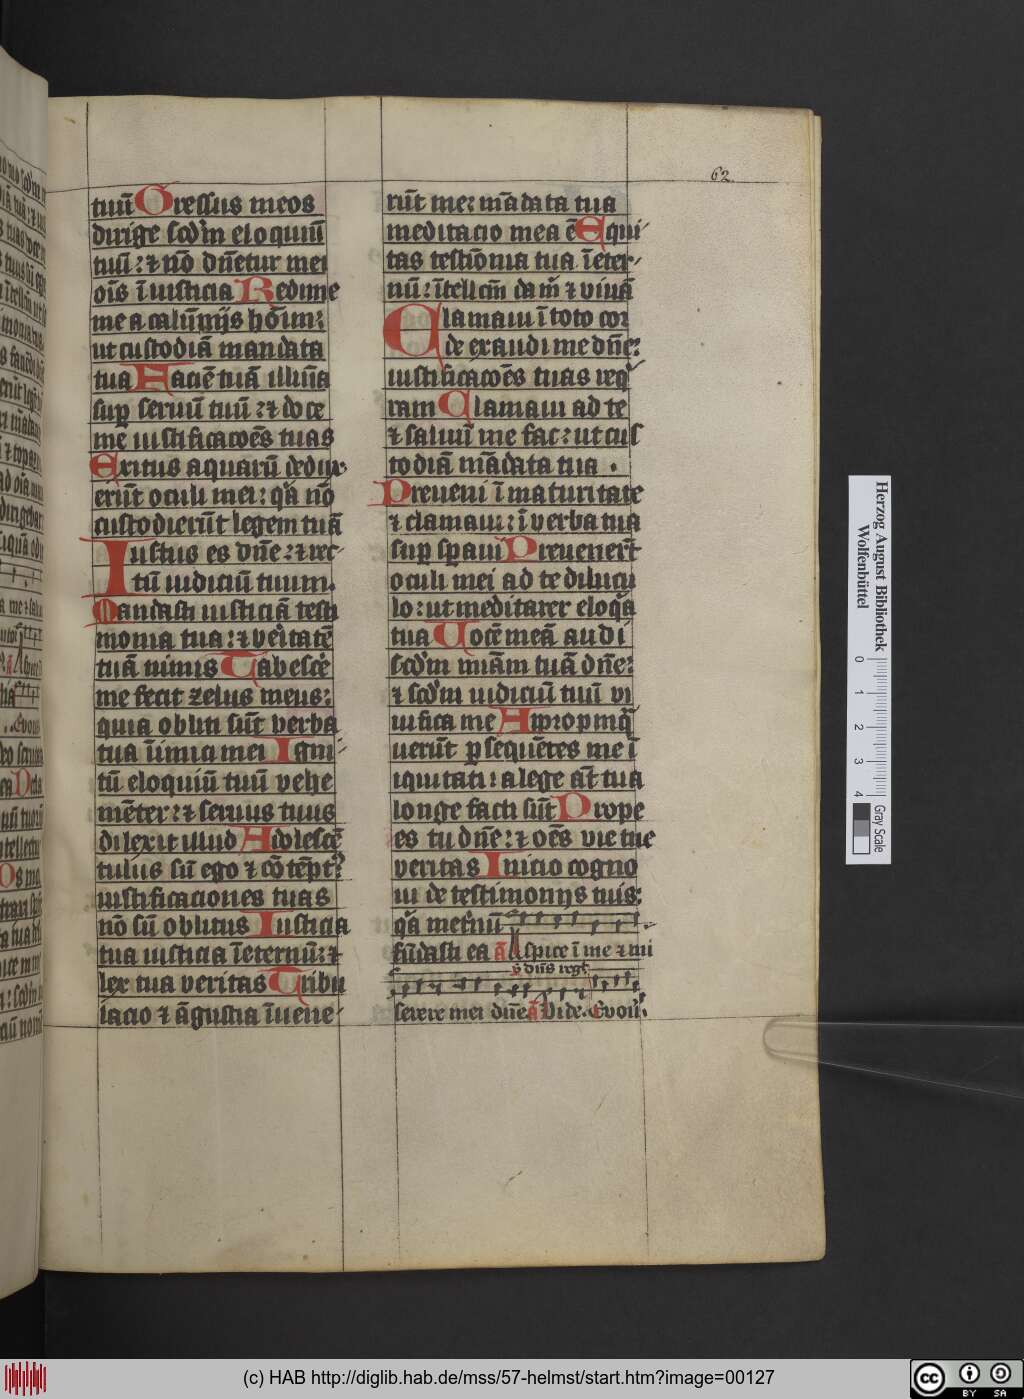 62.
tuū Gressus meos
dirige scd̄m eloquiū
tuū: ⁊ nō dn̄etur mei
oīs īiusticia Redime
me a calūmijs hōim:
ut custodiā mandata
tua Faciē tuā illūīa
sup seruū tuū: ⁊ doce
me iustificacoēs tuas
Exitus aquarū dedux
erūt oculi mei: qͣ nō
custodierūt legem tuā
Iustus es dn̄e: ⁊ rec
tū iudiciū tuum.
Mandasti iusticiā testi
monia tua: ⁊ veritatē
tuā nimis Tabesce
me fecit zelus meus:
quia obliti sūt verba
tua īimici mei Igni
tū eloquiū tuū vehe
mēter: ⁊ seruus tuus
dilexit illud Adolescē
tulus sū ego ⁊ cōtēptꝰ:
iustificaciones tuas
nō sū oblitus Iusticia
tua iusticia īeternū: ⁊
lex tua veritas Tribu
lacio ⁊ āgustia īuene
rūt me: mādata tua
meditacio mea ē Equi
tas testiōnia tua īeter
nū: ītellcm̄ da m̄ ⁊ viuā
Clamaui ī toto cor
de exaudi me dn̄e:
iustificacoēs tuas req̄
ram Clamaui ad te
⁊ saluū me fac: ut cus
todiā mādata tua.
Preueni ī maturitate
⁊ clamaui: ī verba tua
sup spaui Preuenerūt
oculi mei ad te dilucu
lo: ut meditarer eloqͣ
tua Vocē meā audi
scd̄m miām tuā dn̄e:
⁊ scd̄m iudiciū tuū vi
uifica me Apropinq̄
uerūt psequētes me ī
iquitati: a lege āt tua
longe facti sūt Prope
es tu dn̄e: ⁊ oēs vie tue
veritas Inicio cogno
ui de testimonijs tuis:
qͣ īeternū
fūdasti ea ā Aspice ī me ⁊ mi
v dn̄s regt
serere mei dn̄e ā Vide. Euou.
Herzog August Bibliothek
Wolfenbüttel
0 1 2 3 4
Gray Scale
(c) HAB http://diglib.hab.de/mss/57-helmst/start.htm?image=00127
cc BY SA